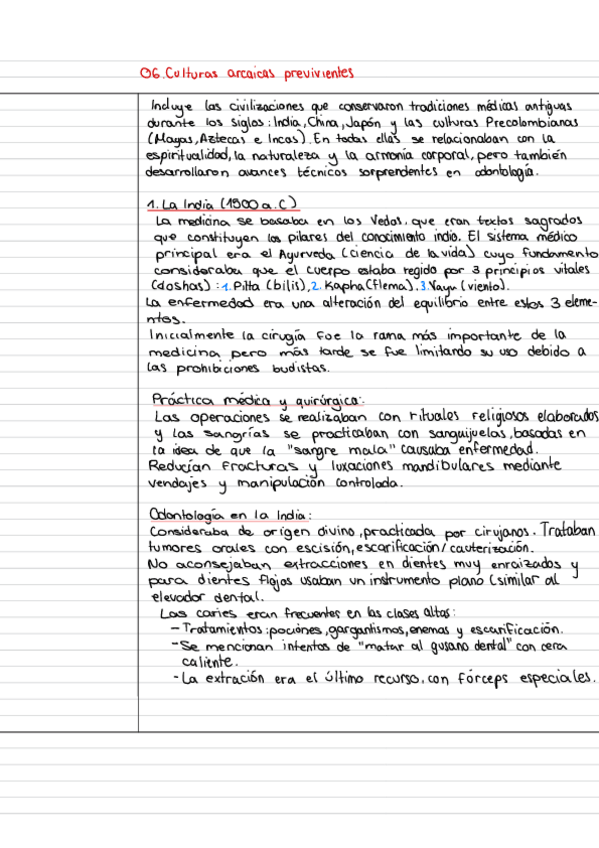 06.Culturas arcaicas previvientes
Incluye las civilizaciones que conservaron tradiciones médicas antiguas
durante los siglos: India, China, Japón y las culturas Precolombianas
(Mayas, Aztecas e Incas). En todas ellas se relacionaban con la
espiritualidad, la naturaleza y la armonía corporal, pero también
desarrollaron avances técnicos sorprendentes en odontología.
1. La India (1500 a.C)
La medicina se basaba en los Vedas, que eran textos sagrados
que constituyen los pilares del conocimiento indio. El sistema médico
principal era el Ayurveda (ciencia de la vida) cuyo fundamento
consideraba que el cuerpo estaba regido por 3 principios vitales
(doshas) : 1. Pitta (bilis), 2. Kapha (flema), 3. Vayu (viento).
La enfermedad era una alteración del equilibrio entre estos 3 eleme-
ntos.
Inicialmente la cirugía fue la rama más importante de la
medicina pero más tarde se fue limitando su uso debido a
las prohibiciones budistas.
Práctica médica y quirúrgica:
Las operaciones se realizaban con rituales religiosos elaborados
y las sangrías se practicaban con sanguijuelas, basadas en
la idea de que la "sangre mala" causaba enfermedad.
Reducían fracturas y luxaciones mandibulares mediante
vendajes y manipulación controlada.
Odontología en la India:
Consideraba de origen divino, practicada por cirujanos. Trataban
tumores orales con escisión, escarificación/cauterización.
No aconsejaban extracciones en dientes muy enraizados y
para dientes flojos usaban un instrumento plano (similar al
elevador dental.
Las caries eran frecuentes en las clases altas:
- Tratamientos: pociones, gargantismos, enemas y escarificación.
- Se mencionan intentos de "matar al gusano dental" con cera
caliente.
- La extracción era el último recurso, con fórceps especiales.